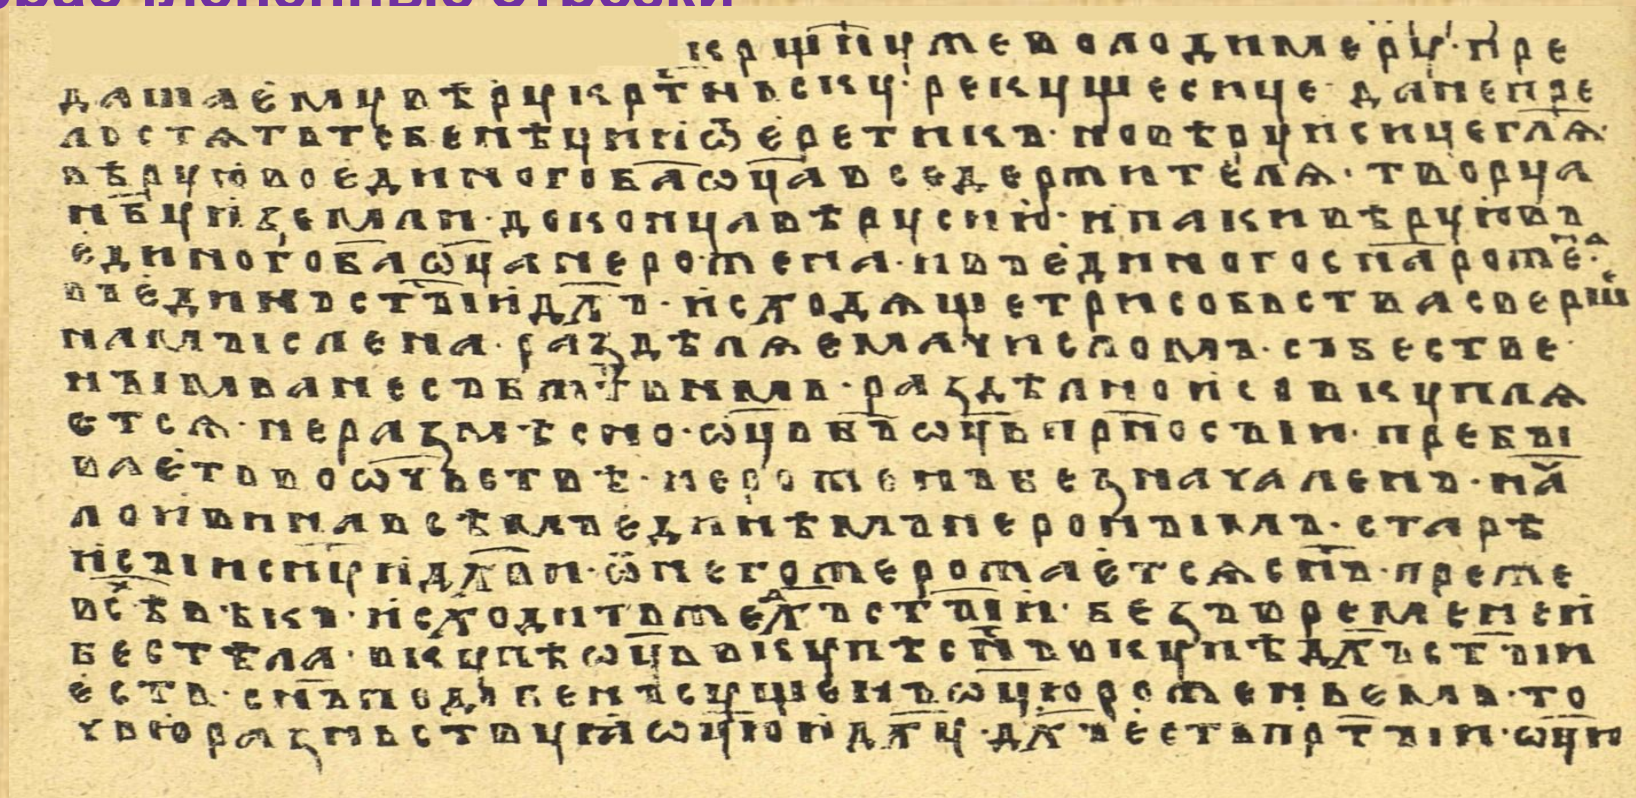 крщ҃ну же володимерꙋ · пре
даша ему вѣру крⷭ҇тьꙗньску · рекуще сице · да не пре
льстѧть тебе нѣции ѿ еретикъ · но вѣруи сице гл҃ѧ ·
вѣрую во единого ба҃ ѡц҃а вседержителѧ · творца
нб҃у и земли · до конца вѣру сию · и паки вѣрую въ
единого ба҃ ѡц҃а нерожена · и въ единого сн҃а рожена
въ единъ ст҃ыи дх҃ъ · исходѧще три собьства сверше
на мыслена · раздѣлѧема числомъ · събестве
нымь а не
раздѣлно и съвкуплѧ
етсѧ · неразмѣсно · ѡц҃ь бъ҃ ѡц҃ь прⷭ҇но сыи · пребы
ваеть во ѡч҃ьствѣ · нероженъ безначаленъ · нача
ло и вина всѣмъ единѣмь нероньимъ · старѣ
и сыи сн҃у и дх҃ви · ѿ него же рожаетсѧ сн҃ъ · преже
всѣ вѣкъ · исходить же дх҃ъ ст҃ыи · без времене и
бес тѣла · вкупѣ ѡц҃ь вкупѣ сн҃ъ вкупѣ дх҃ъ ст҃ыи
есть · сн҃ъ подъбенъ сущенъ ѡц҃ю роженьемъ · то
чью разньствуꙗ ѡц҃ю и дх҃у · дх҃ъ есть прⷭ҇тыи · ѡц҃ю